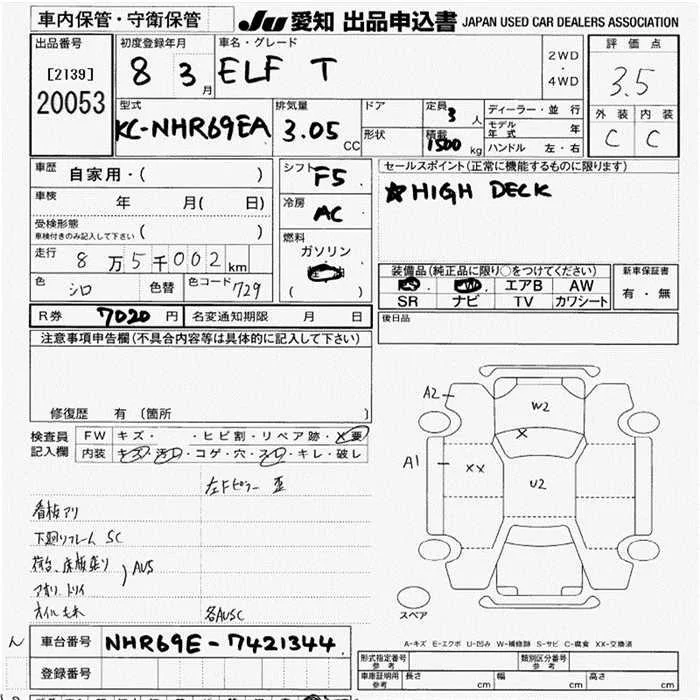 車内保管・守衛保管 JU 愛知 出品申込書 JAPAN USED CAR DEALERS ASSOCIATION
出品番号 初度登録年月 車名・グレード 評価点
[2139] 8 3月 ELF T 2WD・4WD 3.5
20053
型式 排気量 ドア 定員 3人 ディーラー・並行 外装 内装
KC-NHR69EA 3.05cc 形状 積載 1500kg モデル年式 年 C C
ハンドル 左・右
車歴 自家用・( ) シフト F5 セールスポイント(正常に機能するものに限ります)
車検 年 月( 日) 冷房 AC ☆HIGH DECK
受検形態
車検付きのみ記入して下さい ( ) 燃料
走行 8万5千002km ガソリン
色 シロ 色替 色コード 729 ( ) 装備品(純正品に限り○をつけてください) 新車保証書
エアB AW 有・無
SR ナビ TV カワシート
R券 7020円 名変通知期限 月 日 後日品
注意事項申告欄(不具合内容等は具体的に記入して下さい)
修復歴 有 (箇所 )
検査員 FW キズ・ ・ヒビ割・リペア跡・X要
記入欄 内装 キズ・汚れ・コゲ・穴・スレ・キレ・破レ
左Fピラー 歪
看板アリ
下廻りフレーム SC
荷台、床板張り AUS
アオリ、トリイ
オイルもれ 各AUSC
A2 W2
X
A1 XX U2
スペア
A-キズ E-エクボ U-凹み W-補修跡 S-サビ C-腐食 XX-交換済
車台番号 NHR69E-7421344
登録番号
形式指定番号 参考 類別区分番号 参考
車庫証明用 参考 長さ cm 幅 cm 高さ cm